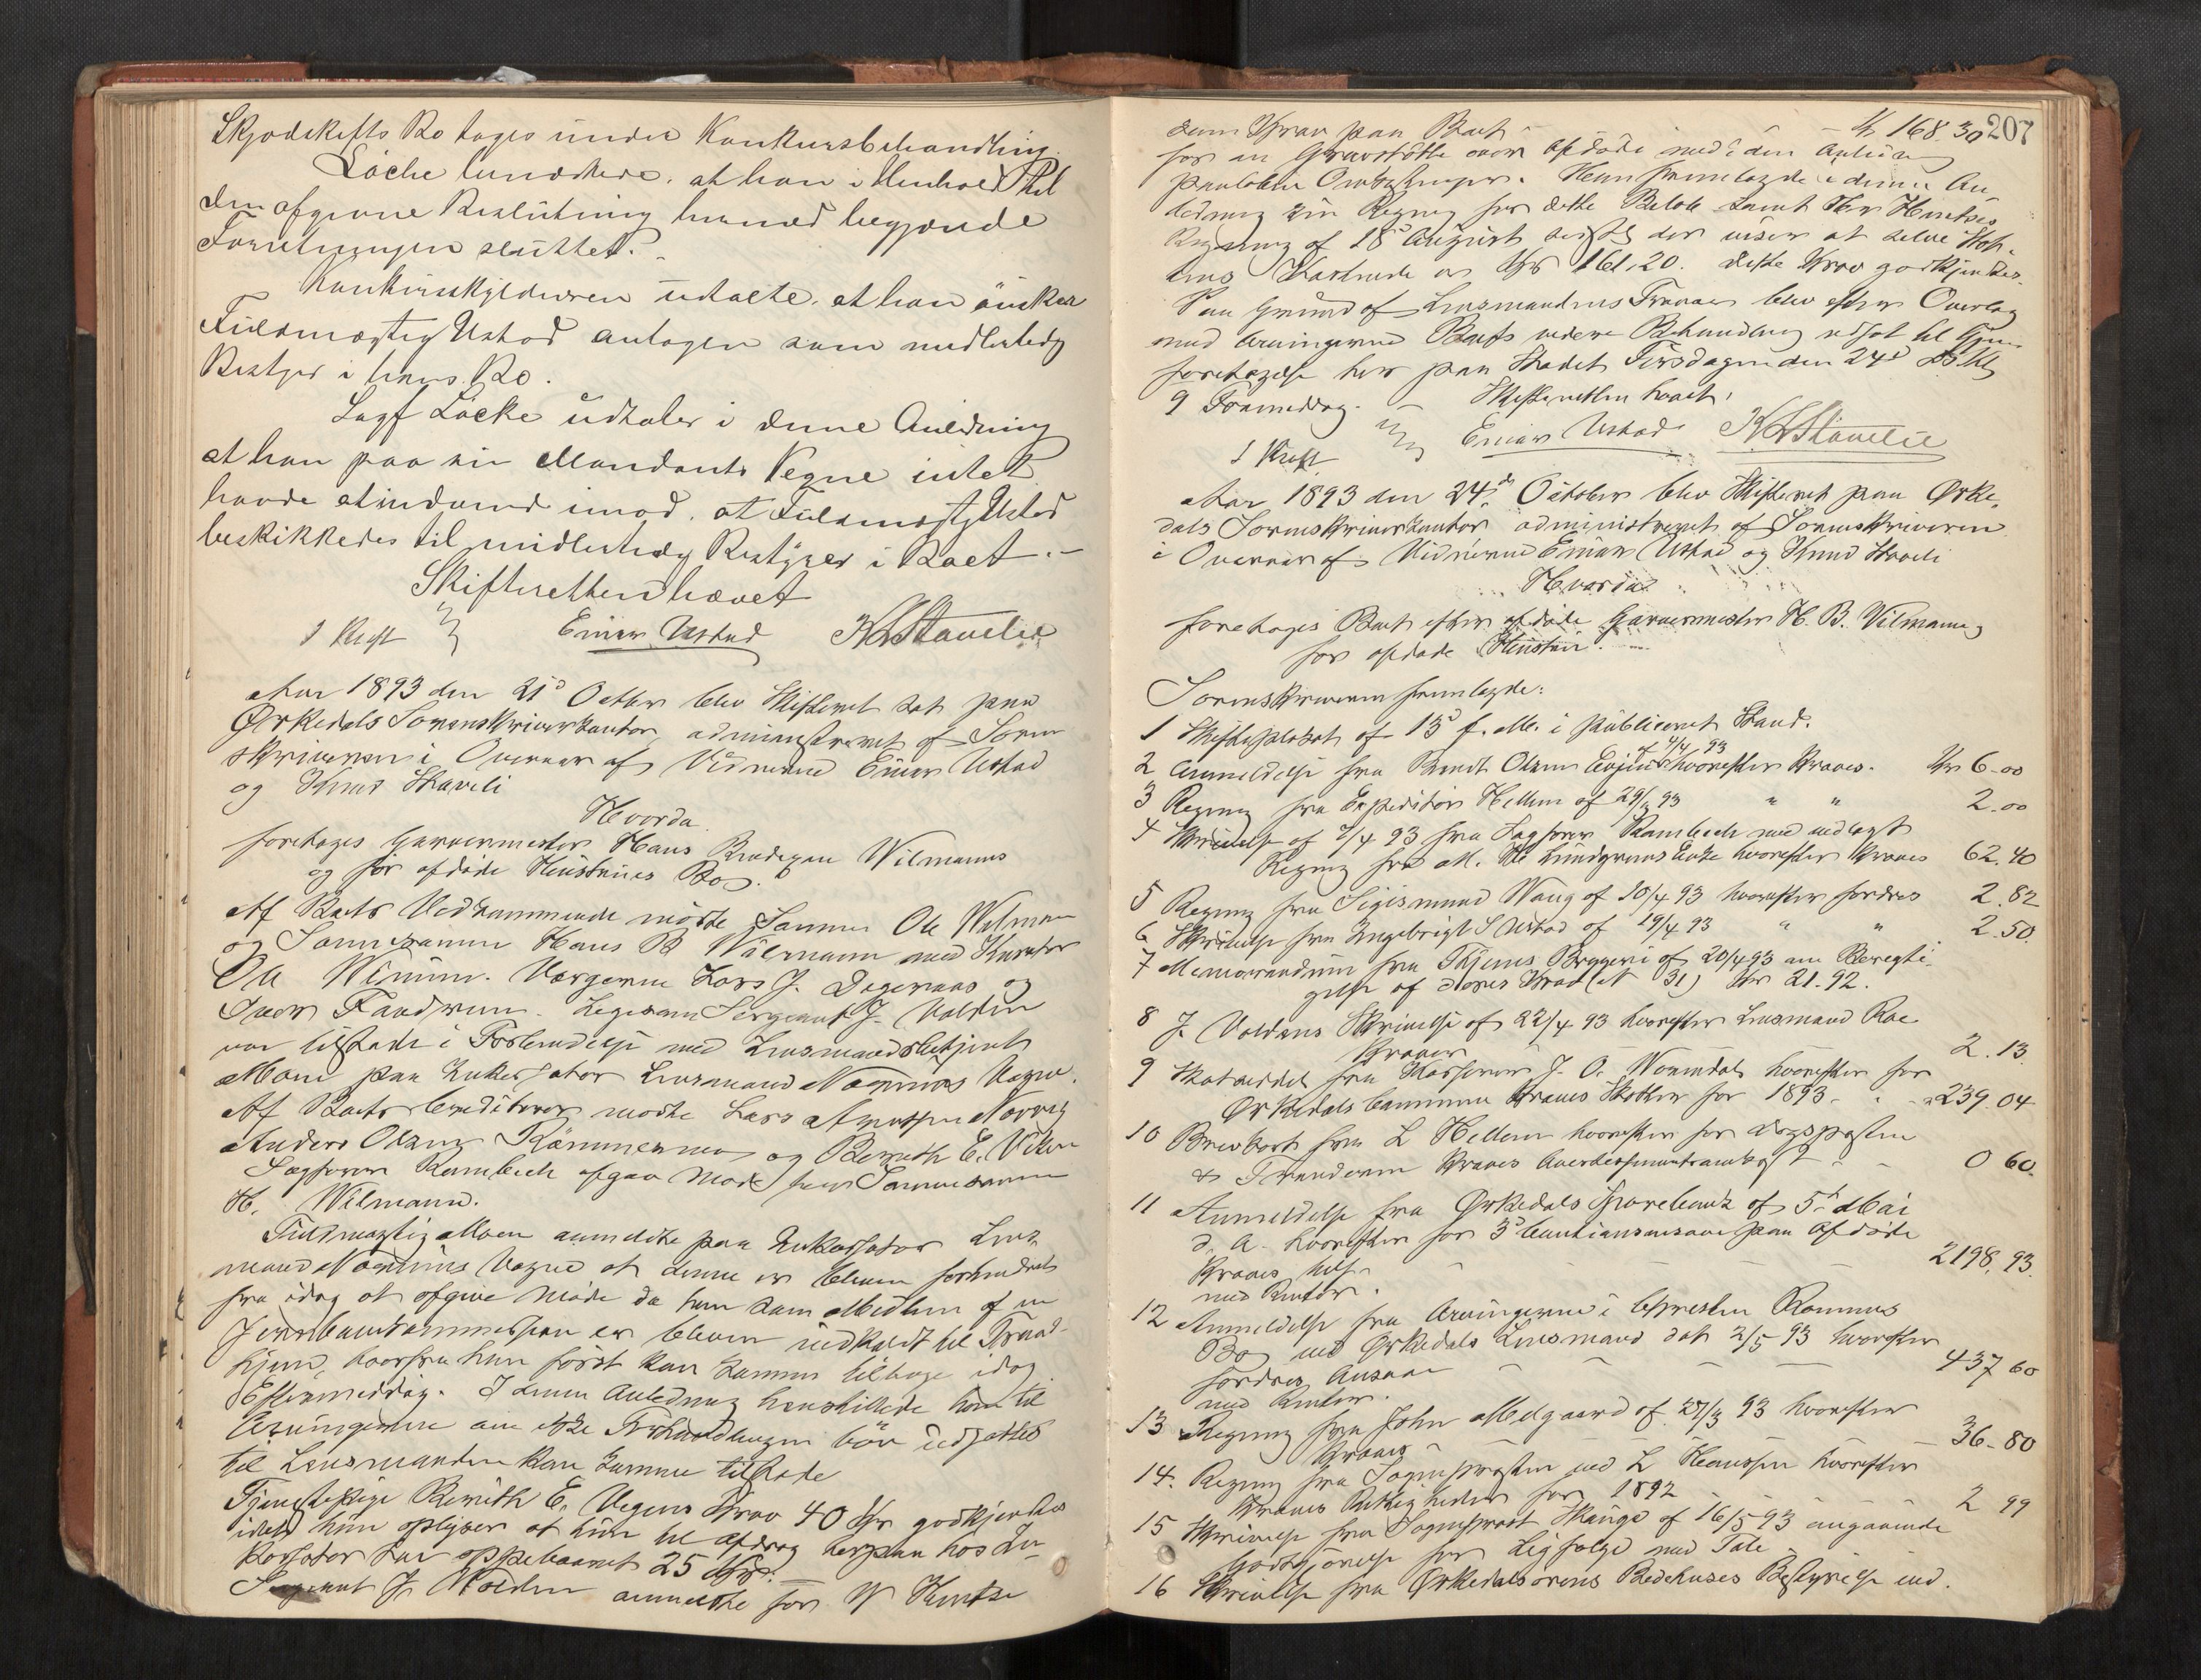 Skjødskifts Bo tages under Konkursbehandling.
Løcke bemærkede, at han i Henhold til
den afgivne Beslutning hermed begjærede
Forretningen sluttet.
Konkursskyldneren udtalte, at han ønsker
Fuldmægtig Ustad antagen som midlertidig
Bestyrer i hans Bo.
Sagf Løcke udtaler i denne Anledning
at han paa sin Mandants Vegne intet
havde at indvende imod, at Fuldmægtig Ustad
beskikkedes til midlertidig Bestyrer i Boet.-
Skifteretten hævet
Einar Ustad K L Stavelie
Aar 1893 den 21d Octbr blev Skifteret sat paa
Ørkedals Sorenskriverkontor, administreret af Soren
skriveren i Overvær af Vidnerne Einar Ustad
og Knut Staveli
Hvorda
foretages Garvermester Hans Wilmanns
og før afdøde Hustrues Bo.
Af Boets Vedkommende mødte Sønnen Ole Wilmann
og Sønnesønnen Hans B Wilmann med Kurator
Ole Wimmer. Værgerne Lars J. og
Iver Fandrem. Ligesom Sergeant J. Volden
var tilstede i Forbindelse med Lensmandsbetjent
Moen paa Inkassator Lensmand Vegne.
Af Boets Creditorer mødte Lars
Anders Olsen og Bereth E.
Sagfører Rambech afgav Møde for Sønnesønnen
H. Wilmann.
Fuldmægtig Moen anmeldte paa Inkassator Lens
mand Vegne at denne er bleven forhindret
fra idag at afgive Møde da han som Medlem af en
Jernbanekommission er bleven indkaldt til Trond-
hjem, hvorfra han først kan komme tilbage idag
Eftermiddag. I denne Anledning henstillede han til
Arvingerne om ikke Forhandlingen bør udsættes
til Lensmanden kan komme tilstede
Tjenestepige Bereth E. Krav 40 Kr godkjendtes
idet hun oplyser at hun til afdrag herpaa hos In-
kassator har oppebaaret 25 Kr.
Sergeant J. Volden anmeldte for W Huntze
207
dem Krav paa Boet Kr 168.30
for en Gravstøtte over afdøde med i den Anledning
paaløbne Omkostninger. Han fremlagde i denne An
ledning sin Regning for dette Beløb samt Hr Huntzes
Regning af 18d August sidstl der viser at selve Støt-
tens Kostende er Kr 161,20. Dette Krav godkjendtes.
Paa Grund af Lensmandens Fravær blev efter Overlæg
med Arvingerne Boets videre Behandling udsat til
foretagelse her paa Stedet Tirsdagen den 24d ds kl
9 Formiddag. Skifteretten hævet.
Einar Ustad K L Stavelie
Aar 1893 den 24de October blev Skifteret paa Ørke-
dals Sorenskriverkontor administreret af Sorenskriveren
i Overvær af Vidnerne Einar Ustad og Knud Staveli
Hvorda
foretages Boet efter afdøde Garvermester H. B. Wilmann og
før afdøde Hustru.
Sorenskriveren fremlagde:
1 Skifteplakat af 13d f. M. i publiceret Stand.
2 Anmeldelse fra Berndt Olsen af 4/4 93 hvorefter kræves. Kr 6-00
3 Regning fra Expeditør Hellem af 29/3 93 " " 2.00
4 Skrivelse af 7/4 93 fra Sagfører Rambech med vedlagt
Regning fra M. H. Lundgreens Enke hvorefter kræves 62.40
5 Regning fra Sigismund Waug af 10/4 93 hvorefter fordres 2.82
6 Skrivelse fra Ingebrigt S Ustad af 19/4 93 " " 2.50.
7 Memorandum fra Tkjems Bryggeri af 20/4 93 om Berigti-
gelse af deres Krav (N 31) Kr 21.92.
8 J. Voldens Skrivelse af 22/4 93 hvorefter Lensmand Roe
kræver 2.13.
9 Skatseddel fra Kasserer J. O. hvorefter for
Ørkedals Commune kræves Skatter for 1893 - - " 239.04
10 Brevkort fra L Hellem hvorefter for Dagsposten
& Trondhjem kræves Avertissementsomkost - - 0 60.
11 Anmeldelse fra Ørkedals Sparebank af 5te Mai
d. A. hvorefter for 3d Cautionsansvar paa afdøde
kræves tils - - 2198.93.
med Renter.
12 Anmeldelse fra Arvingerne i Christen
Bo ved Ørkedals Lensmand dat 2/5 93 hvorefter
fordres Ansvar - - - 437 60
med Renter.
13 Regning fra John Melgaard af 27/3 93 hvorefter
kræves - - - 36-80
14. Regning fra Sognepresten ved L Hanssen hvorefter
kræves Rettigheder for 1892 2 99
15 Skrivelse fra Sogneprest Skauge af 16/5 93 angaaende
Godtgjørelse for Ligfølge med Tale
16 Skrivelse fra Ørkedalsørens Bedehuses Bestyrelse ind.